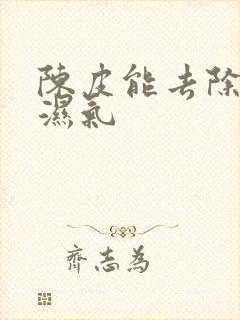 陳皮能去除
濕氣
齊志為